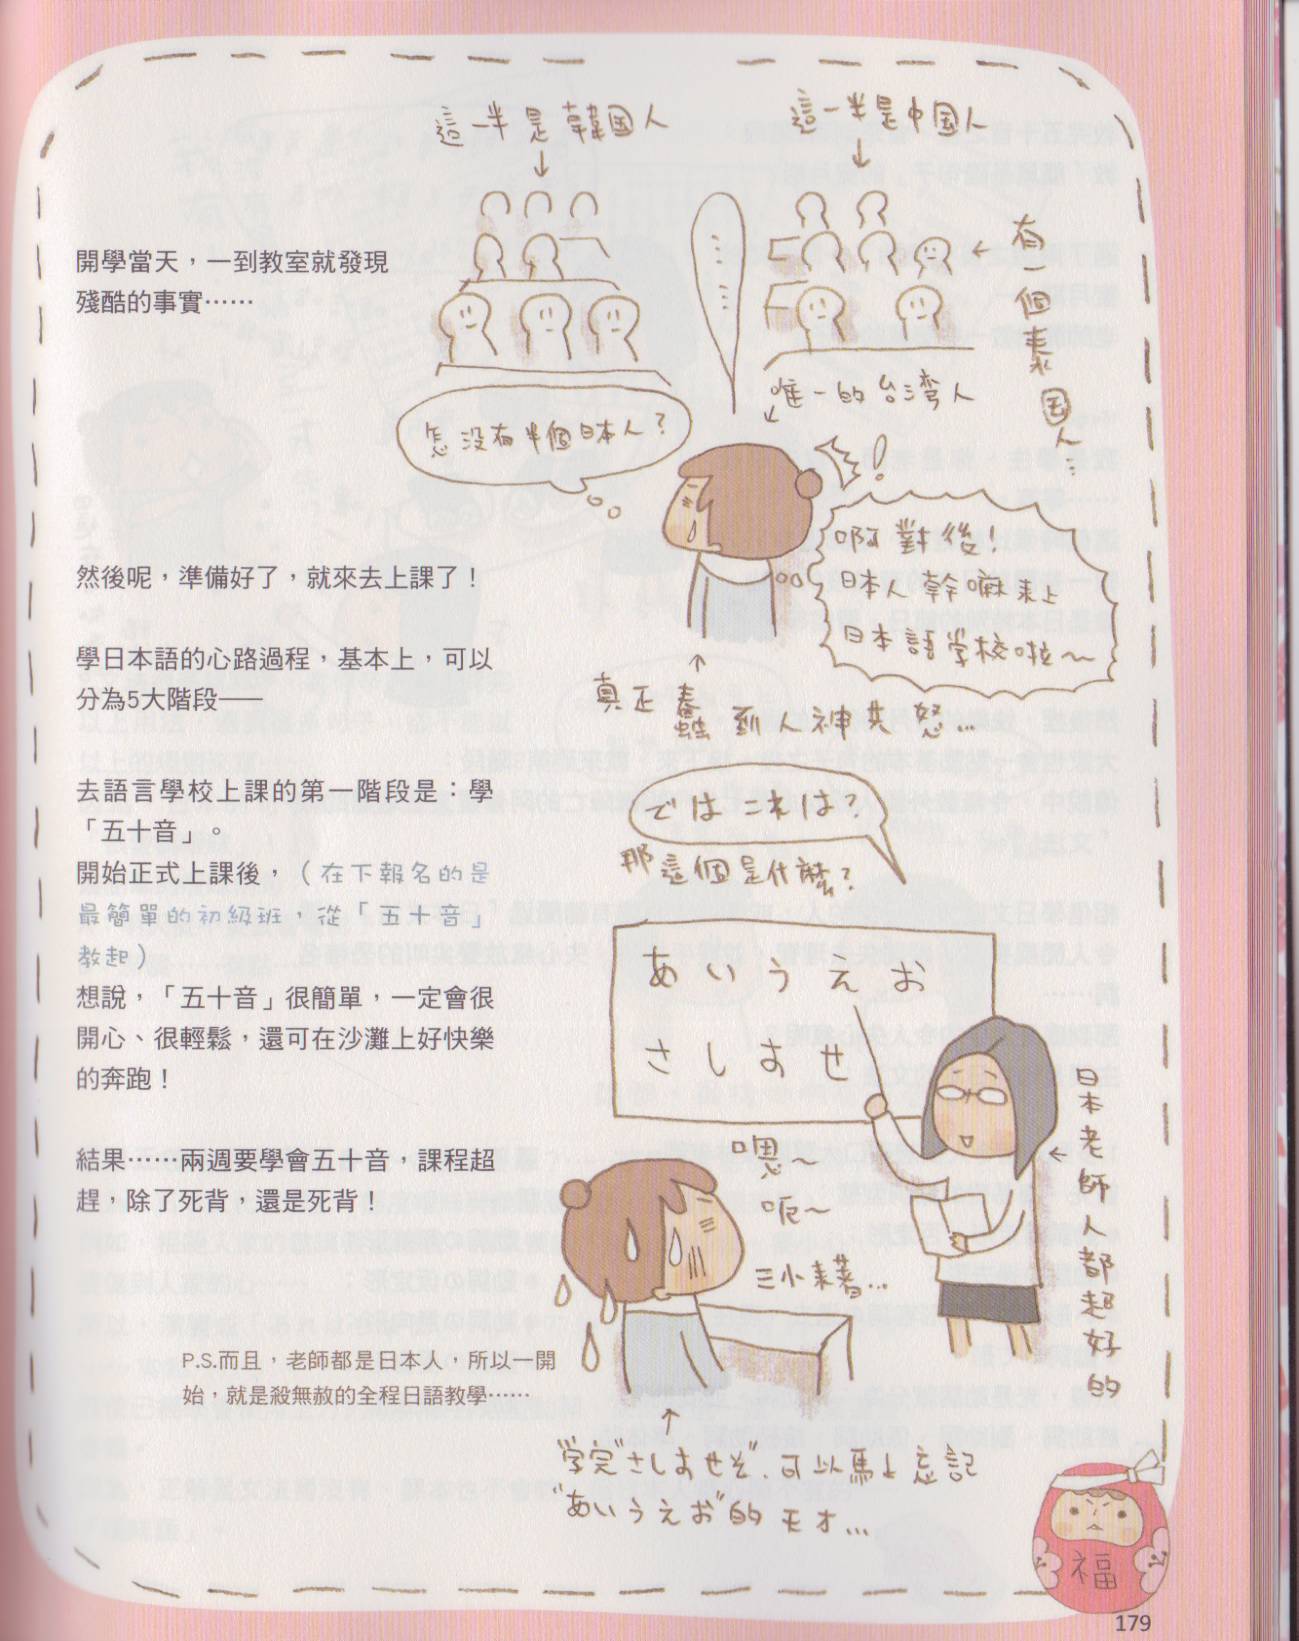 這一半是韓國人
這一半是中國人
有一個泰國人…
開學當天，一到教室就發現
殘酷的事實……
……
唯一的台湾人
怎沒有半個日本人？
！
啊對後！
日本人幹嘛來上
日本語学校啦～
真正蠢到人神共怒…
然後呢，準備好了，就來去上課了！
學日本語的心路過程，基本上，可以
分為5大階段——
去語言學校上課的第一階段是：學
「五十音」。
開始正式上課後，（在下報名的是
最簡單的初級班，從「五十音」
教起）
想說，「五十音」很簡單，一定會很
開心、很輕鬆，還可在沙灘上好快樂
的奔跑！
結果……兩週要學會五十音，課程超
趕，除了死背，還是死背！
P.S.而且，老師都是日本人，所以一開
始，就是殺無赦的全程日語教學……
では これは？
那這個是什麼？
あ い う え お
さ し す せ
日本老師人都超好的
嗯～
呃～
三小來著…
"学完"さしすせそ"，可以馬上忘記
"あいうえお"的天才…
福
179